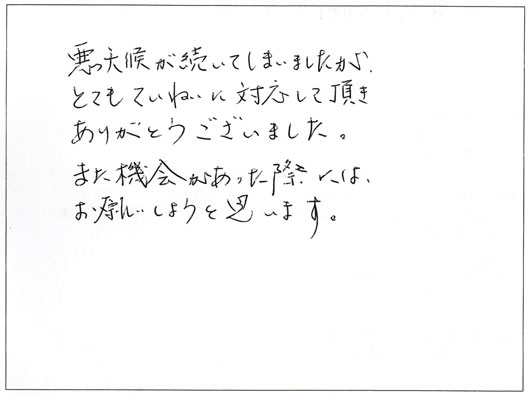 悪天候が続いてしまいましたが、
とてもていねいに対応して頂き
ありがとうございました。
また機会があった際には、
お願いしようと思います。